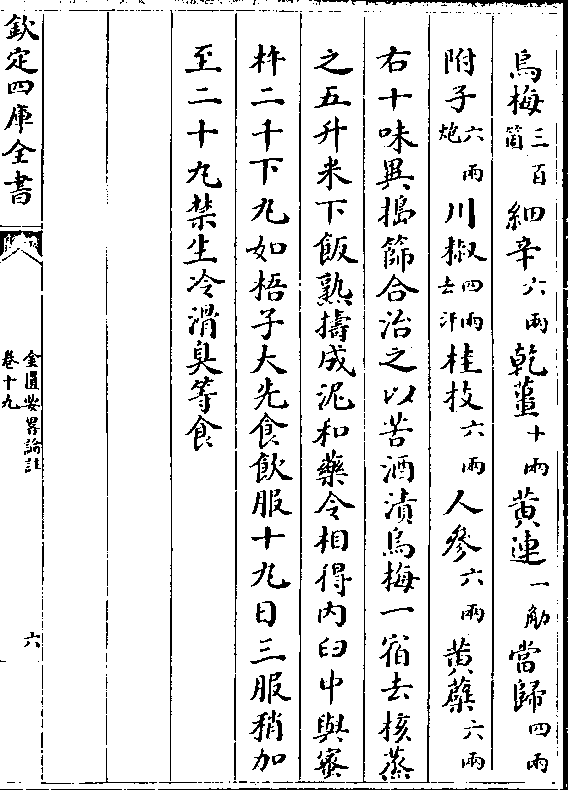 烏梅三百箇細辛六兩乾薑十兩黄連一觔當歸四兩
附子六兩炮川椒四兩去汗桂枝六兩人參六兩黄蘗六兩
右十味異搗篩合治之以苦酒漬烏梅一宿去核蒸
之五升米下飯熟擣成泥和藥令相得内臼中與蜜
杵二千下丸如梧子大先食飲服十丸日三服稍加
至二十丸禁生冷滑臭等食
欽定四庫全書
金匱要畧論註
卷十九
六